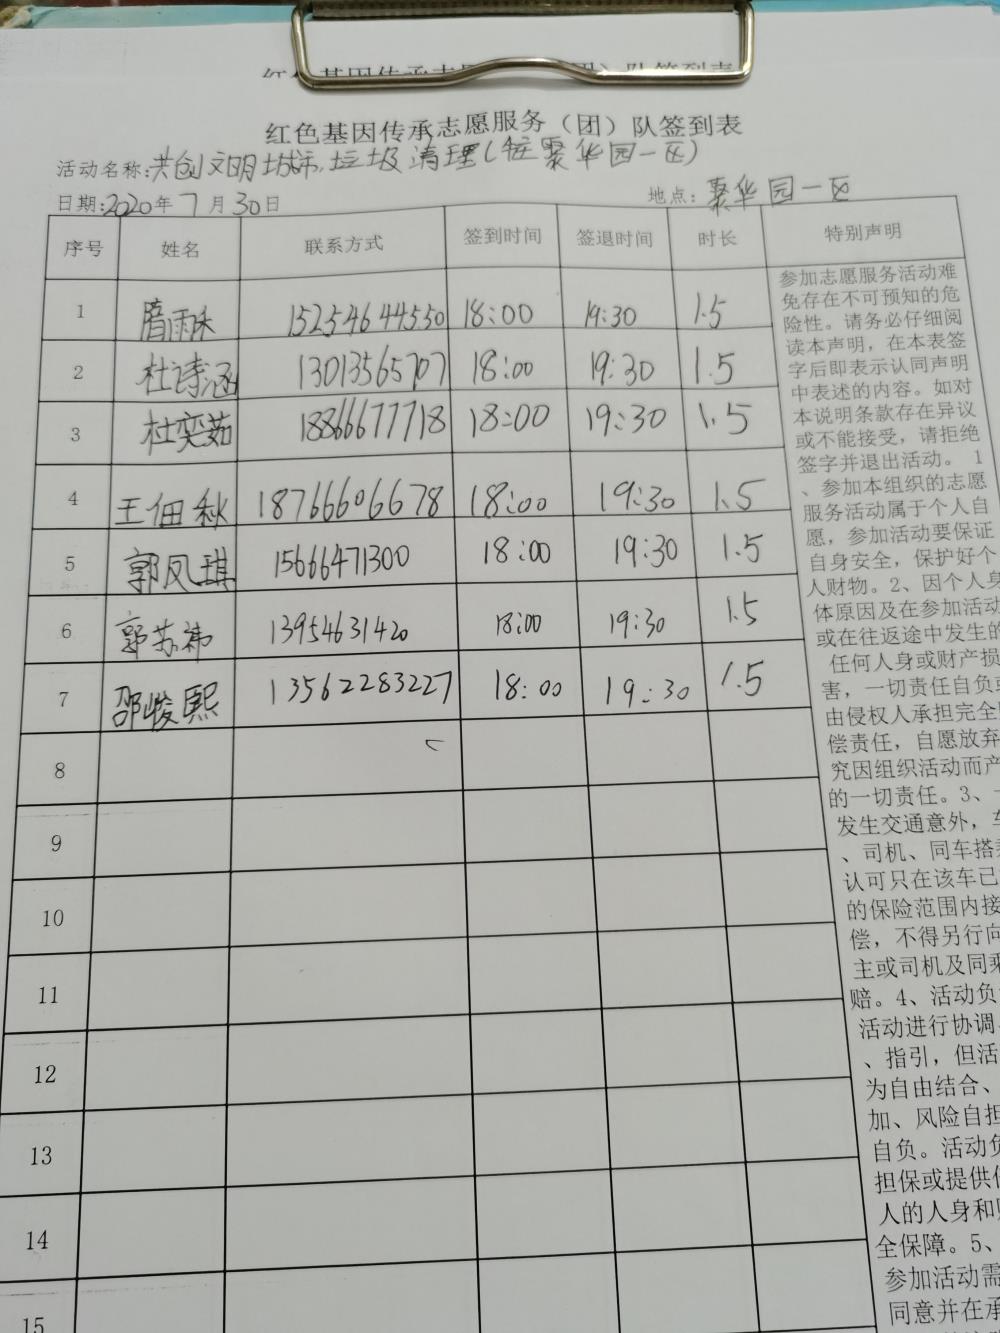 红色基因传承志愿服务（团）队签到表
活动名称:共创文明城市,垃圾清理(锦聚华园一区)
日期:2020年7月30日 地点:聚华园一区
序号 姓名 联系方式 签到时间 签退时间 时长 特别声明
1 隋雨彤 15254644550 18:00 19:30 1.5
2 杜诗涵 13013565707 18:00 19:30 1.5
3 杜奕茹 18866677718 18:00 19:30 1.5
4 王佃秋 18766606678 18:00 19:30 1.5
5 郭凤琪 15666471300 18:00 19:30 1.5
6 郭苏祎 13954631420 18:00 19:30 1.5
7 邵峻熙 13562283227 18:00 19:30 1.5
8
9
10
11
12
13
14
15
参加志愿服务活动难
免存在不可预知的危
险性。请务必仔细阅
读本声明，在本表签
字后即表示认同声明
中表述的内容。如对
本说明条款存在异议
或不能接受，请拒绝
签字并退出活动。 1
、参加本组织的志愿
服务活动属于个人自
愿，参加活动要保证
自身安全，保护好个
人财物。2、因个人身
体原因及在参加活动
或在往返途中发生的
任何人身或财产损
害，一切责任自负或
由侵权人承担完全
偿责任，自愿放弃
究因组织活动而产
的一切责任。3、
发生交通意外，车
、司机、同车搭乘
认可只在该车已
的保险范围内接
偿，不得另行向
主或司机及同乘
赔。4、活动负
活动进行协调、
、指引，但活
为自由结合、
加、风险自担
自负。活动负
担保或提供
人的人身和
全保障。5、
参加活动需
同意并在承